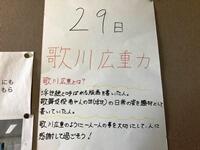 29日
歌川広重力
歌川広重とは?
浮世絵と呼ばれる版画を書いた人。
歌舞伎役者や人の
の日常の姿を題材として
書いていた人。
歌川広重のように一人一人の事を大切にして、人に
感謝して過ごそう!
にも
もら